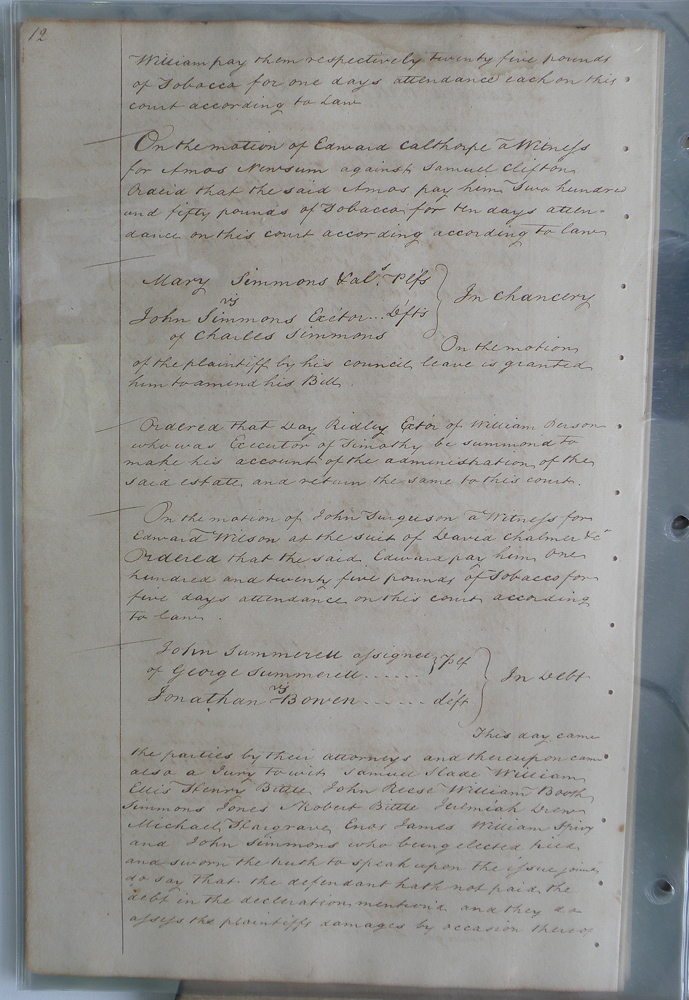 12
William pay them respectively twenty five pounds
of Tobacco for one days attendance each on this
court according to Law
On the motion of Edward Calthorpe a Witness
for Amos Newsum against Samuel Clifton
Ordeid that the said Amos pay him Two hundred
and fifty pounds of Tobacco for ten days atten-
dance on this court according according to law
Mary Simmons & als. Plfs
vs
In Chancery
John Simmons Exētor... Dfts
of Charles Simmons
On the motion
of the plaintiff by his council leave is granted
him to amend his Bill
Ordered that Day Ridley Extor of William Person
who was Executor of Timothy be summond to
make his account of the administration of the
said estate and return the same to this court.
On the motion of John Furguson a Witness for
Edward Wilson at the suit of David Chalmer &c
Ordered that the said Edward pay him One
hundred and twenty five pounds of Tobacco for
five days attendance on this court according
to law
John Summerell assignee plf
of George Summerell......
In Debt
vs
Jonathan Bowen...... deft
This day came
the parties by their attorneys and thereupon came
also a Jury to wit Samuel Slade William
Ellis Henry Bittle John Reese William Booth
Simmons Jones Robert Bittle Jeremiah Drew
Michael Hargrave Enos James William Spivy
and John Simmons who being elected tried
and sworn the truth to speak upon the issue joined
do say that the defendant hath not paid the
debt in the decleration mention'd and they do
assess the plaintiffs damages by occasion thereof